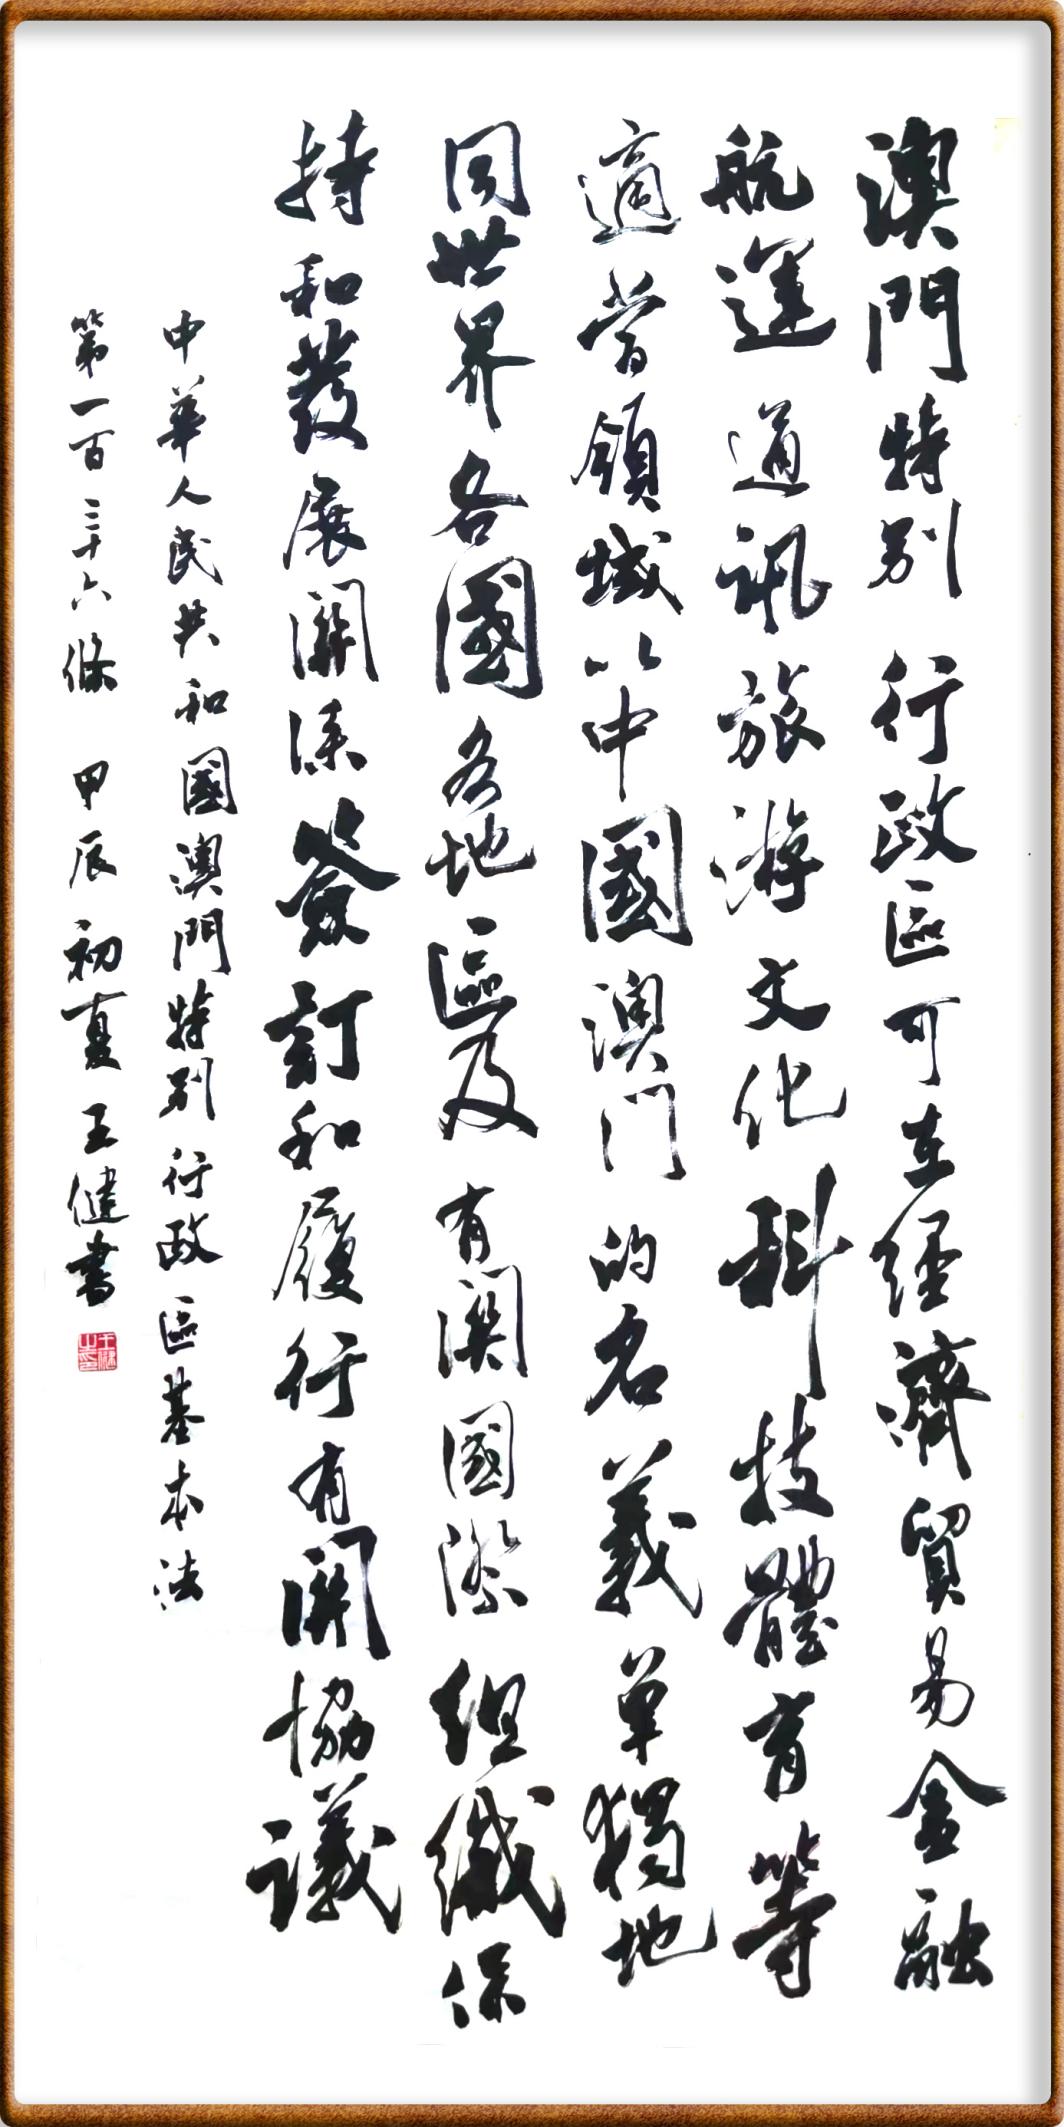 澳門特別行政區可在經濟貿易金融
航運通訊旅游文化科技體育等
適當領域以中國澳門的名義單獨地
同世界各國各地區及有關國際組織保
持和發展關係簽訂和履行有關協議
中華人民共和國澳門特別行政區基本法
第一百三十六條 甲辰初夏王健書
王健之印